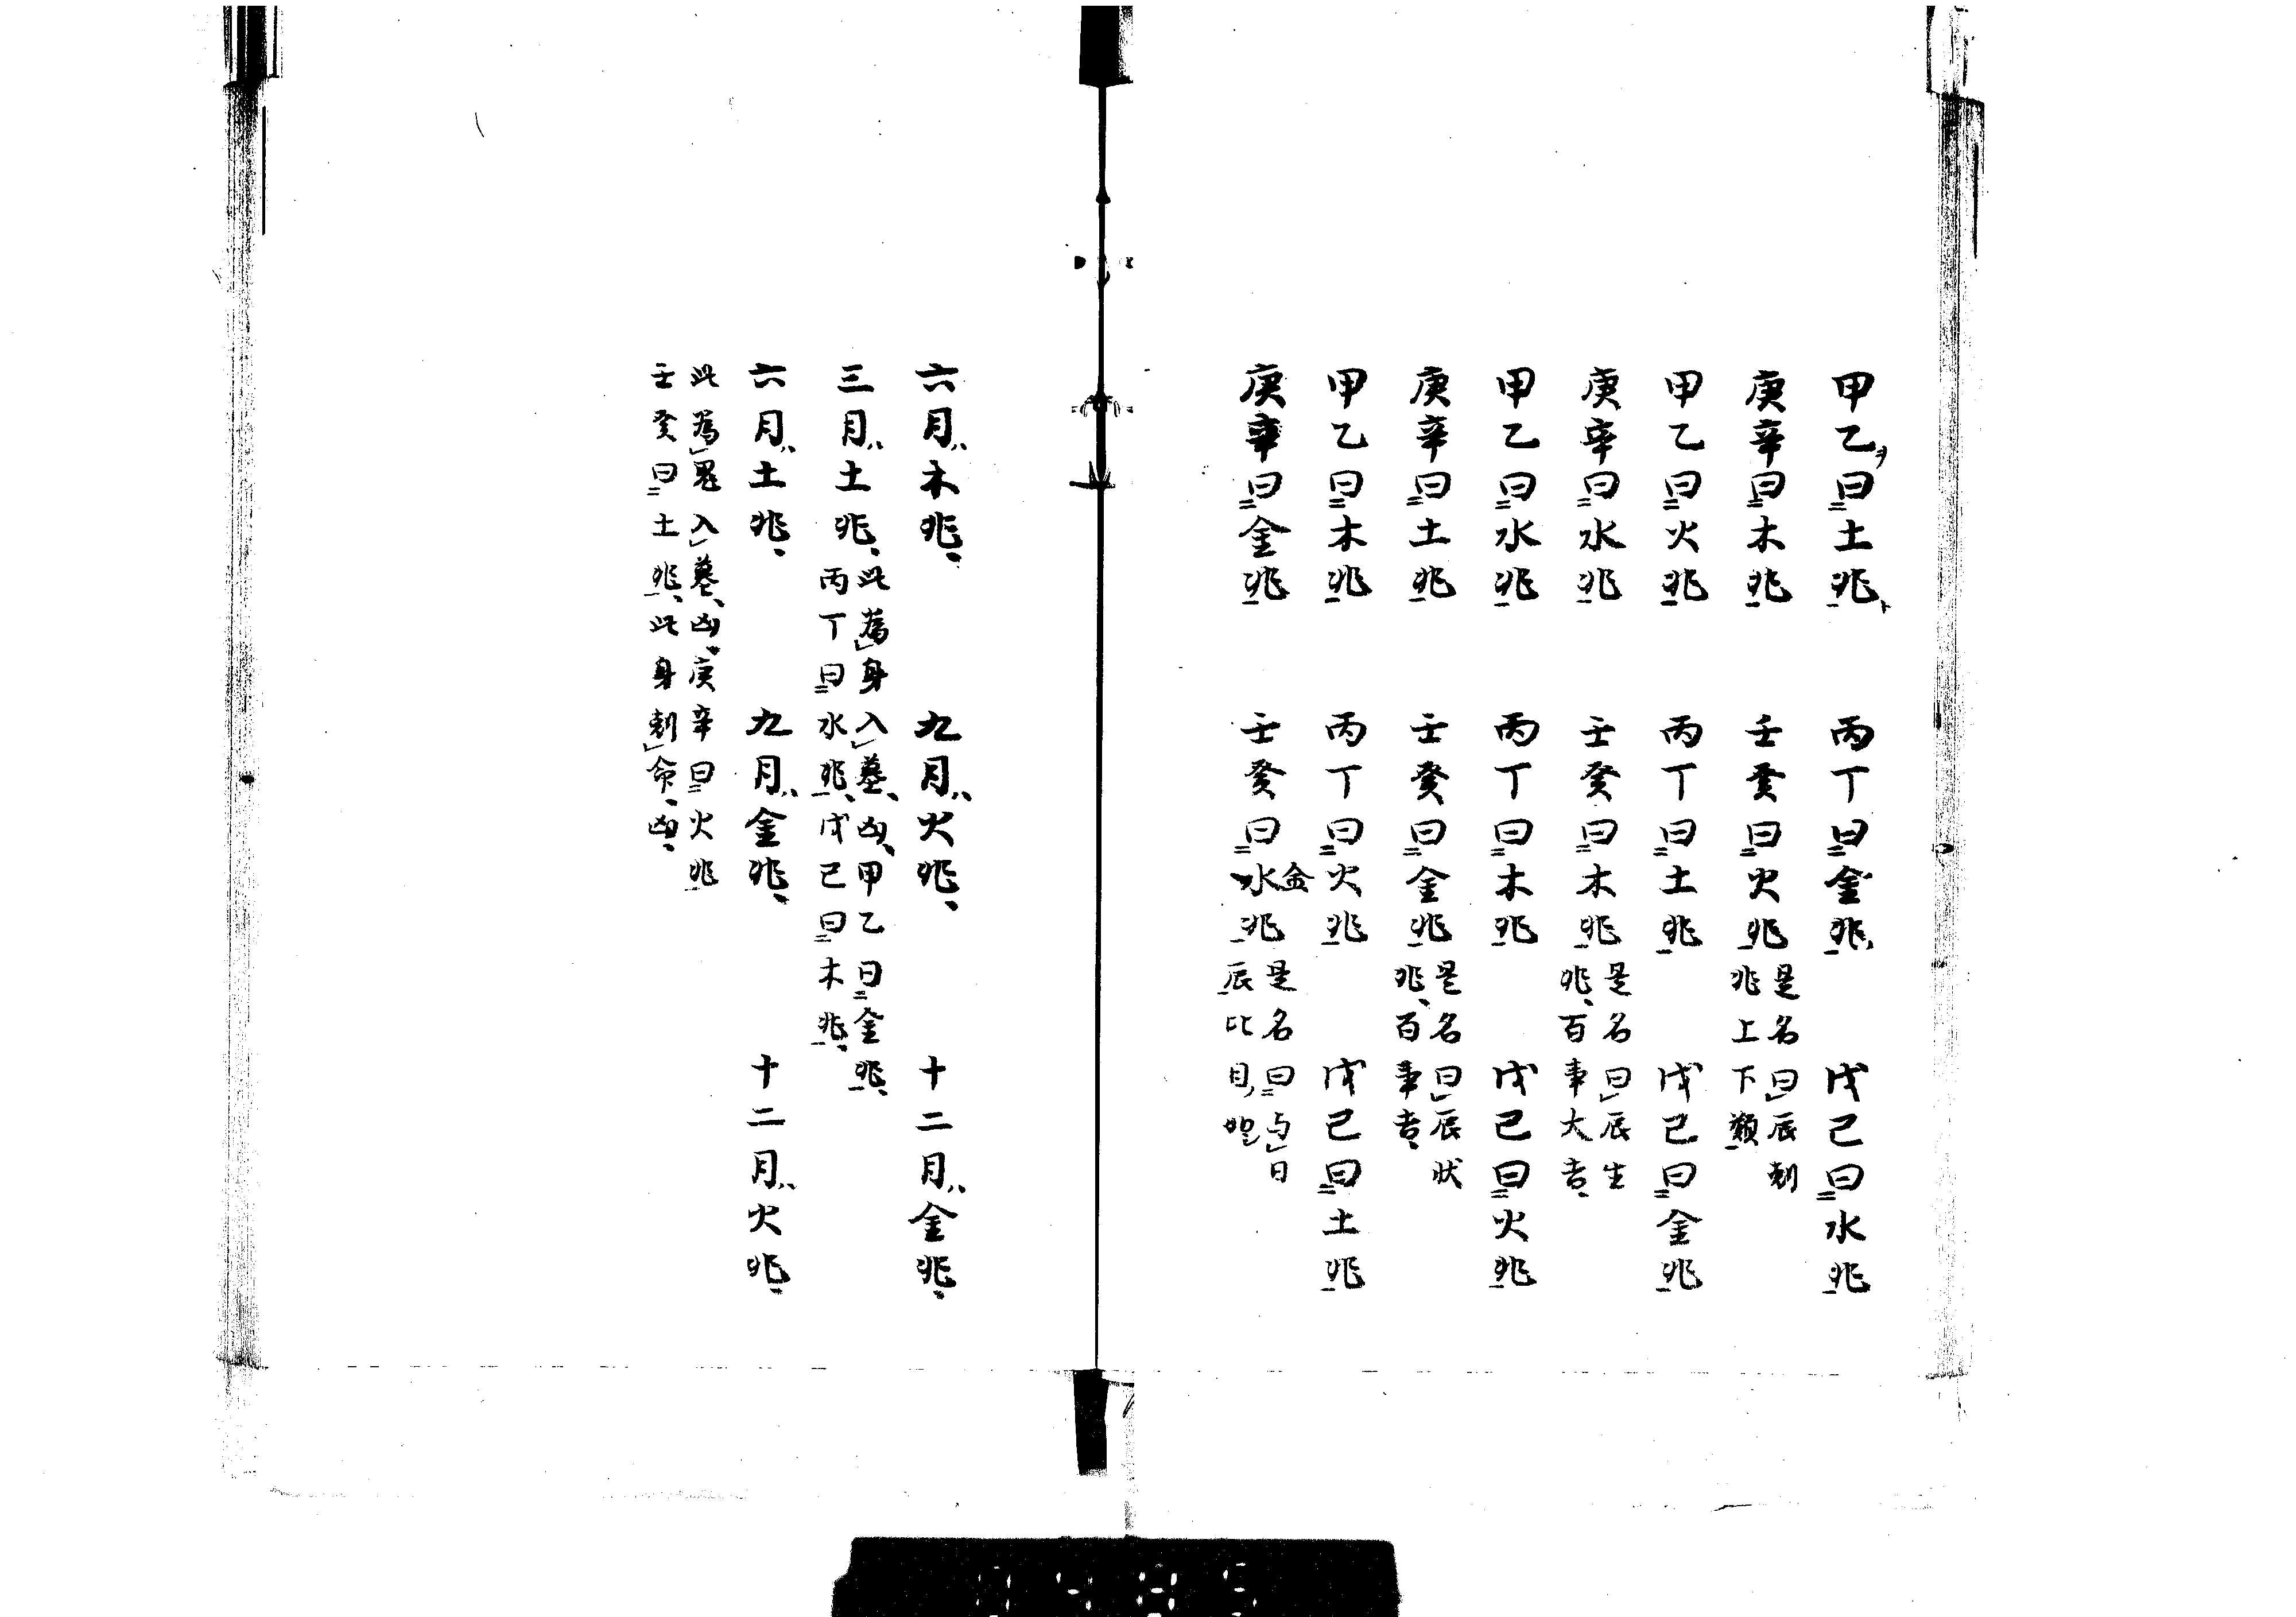 甲乙曰土兆　丙丁曰金兆　戊己曰水兆
庚辛曰木兆　壬癸曰火兆　是名曰辰剋
兆上下類
甲乙曰火兆　丙丁曰土兆　戊己曰金兆
庚辛曰水兆　壬癸曰木兆　是名曰辰生
兆百事大吉
甲乙曰水兆　丙丁曰木兆　戊己曰火兆
庚辛曰土兆　壬癸曰金兆　是名曰辰狀
兆百事吉
甲乙曰木兆　丙丁曰火兆　戊己曰土兆
庚辛曰金兆　壬癸曰水兆　是名曰与日
金
辰比目
六月木兆　九月火兆　十二月金兆
三月土兆　此為身入墓凶甲乙曰金兆
丙丁曰水兆戊己曰木兆
六月土兆　九月金兆　十二月火兆
此為鬼入墓凶庚辛曰火兆
壬癸曰土兆此身剋命凶